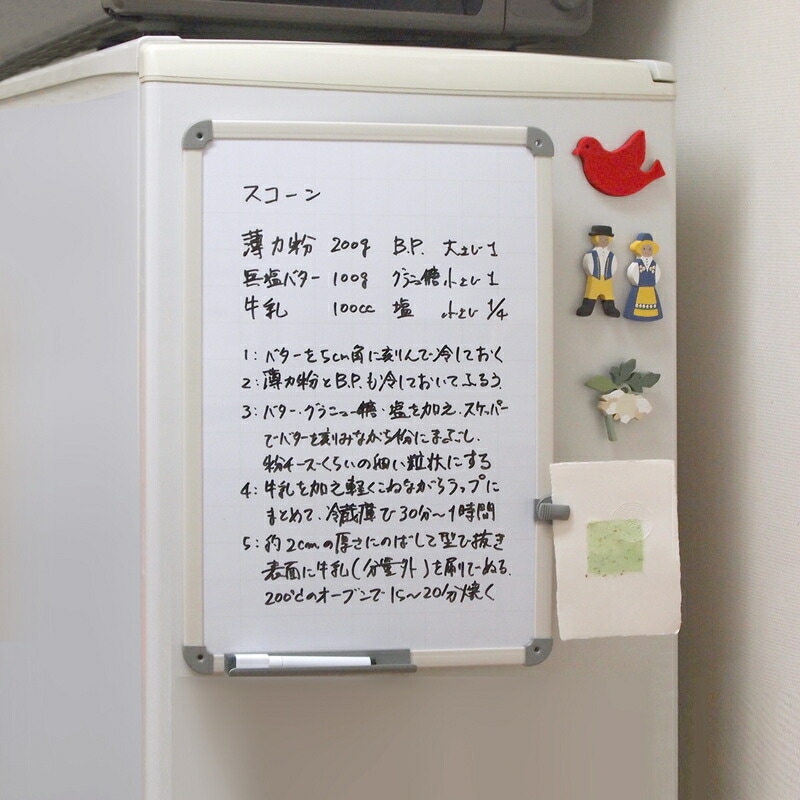 スコーン
薄力粉 200g B.P. 大さじ1
巨塩バター 100g グラニュー糖 小さじ1
牛乳 100cc 塩 小さじ1/4
1: バターを5cm角に刻んで冷しておく
2: 薄力粉とB.P.も冷しておいてふるう.
3: バター・グラニュー糖・塩を加え.スケッパー
でバターを刻みながら粉にまぶし.
粉チーズくらいの細い粒状にする
4: 牛乳を加え軽くこねながらラップに
まとめて、冷蔵庫で30分〜1時間
5: 約2cmの厚さにのばして型で抜き
表面に牛乳(分量外)を刷けでぬる.
200℃のオーブンで15〜20分焼く